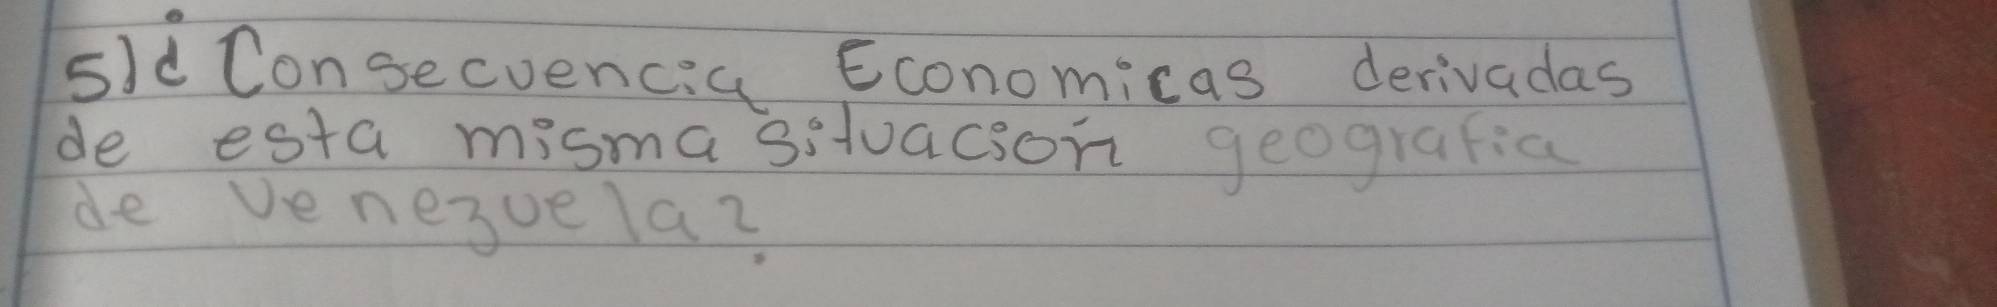 5)¿Consecuencia Economicas derivadas
de esta misma situación geografia
de venezuela?